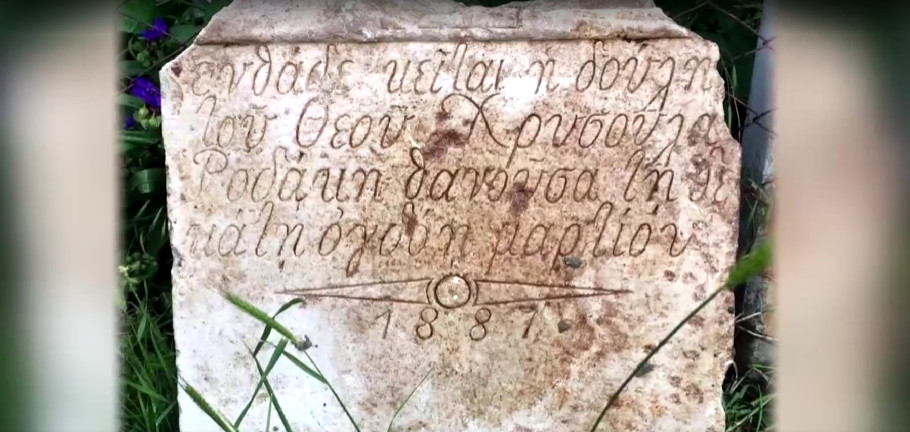 ενθάδε κεῖται ἡ δούλη
τοῦ Θεοῦ Χρυσούλα
Ροδάκη θανοῦσα τῇ δε
κάτῃ ὀγδόῃ μαρτίου
1887